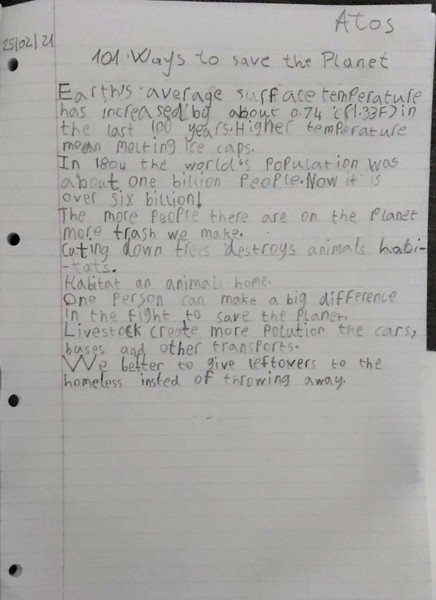 Atos
25/02/21
101 Ways to save the Planet
Earth's average surface temperature
has increased by about 0.74°c (1.33F) in
the last 100 years. Higher temperature
mean molting ice caps.
In 1804 the world's Population was
about one billion People. Now it is
over six billion!
The more People there are on the Planet
more trash we make.
Cuting down trees destroys animals habi-
-tats.
Habitat an animals home.
One Person can make a big difference
in the fight to save the Planet.
Livestock create more polution the cars,
buses and other transports.
We better to give leftovers to the
homeless insted of throwing away.